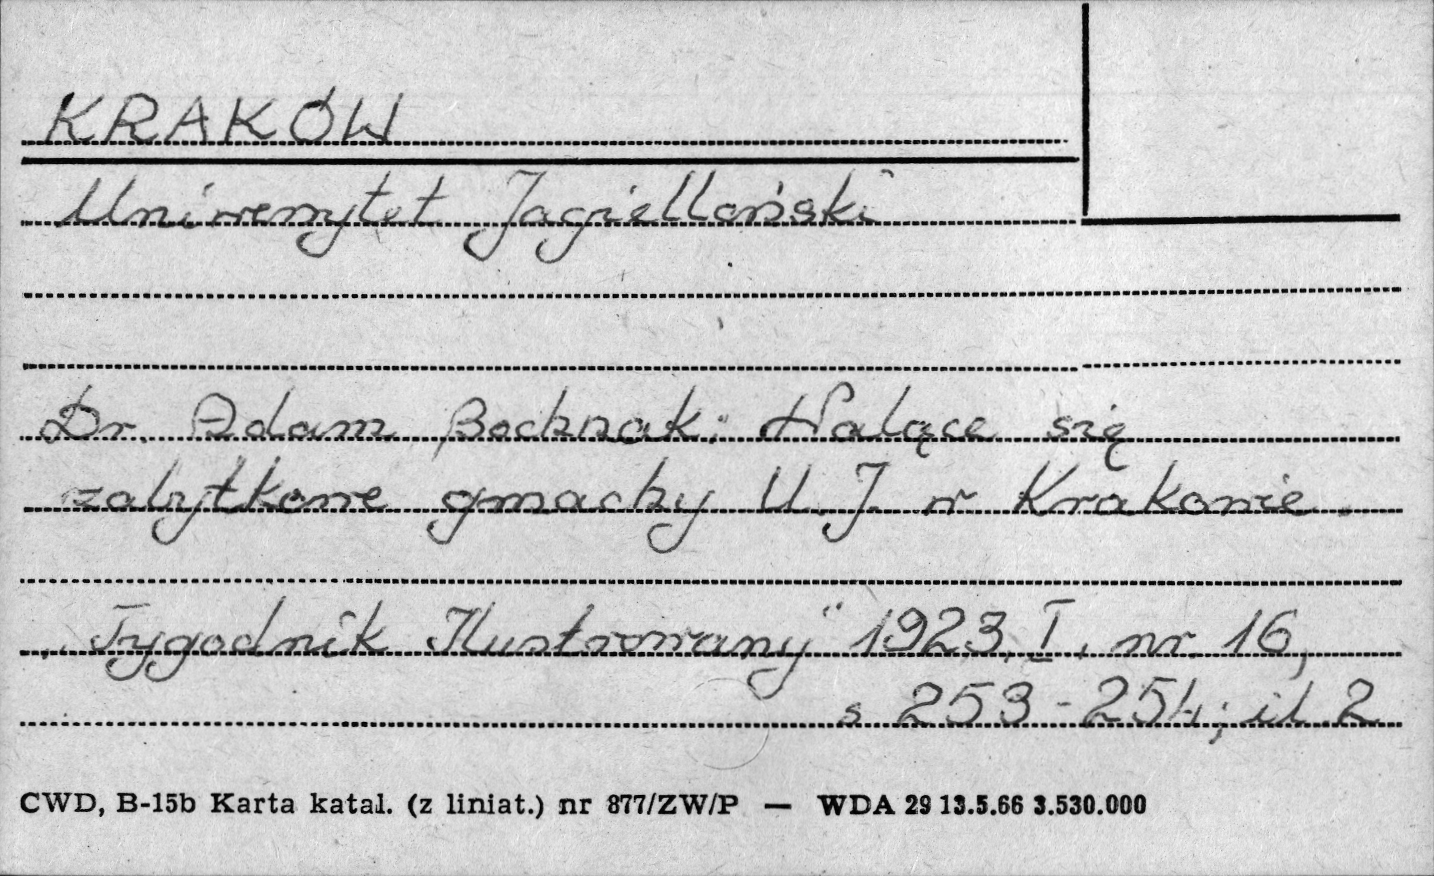 KRAKÓW
Uniwersytet Jagielloński
Dr. Adam Bochnak: Walące się
zabytkowe gmachy U.J. w Krakowie.
„Tygodnik Ilustrowany" 1923.I. nr 16,
s 253-254; il. 2
CWD, B-15b Karta katal. (z liniat.) nr 877/ZW/P — WDA 29 13.5.66 3.530.000